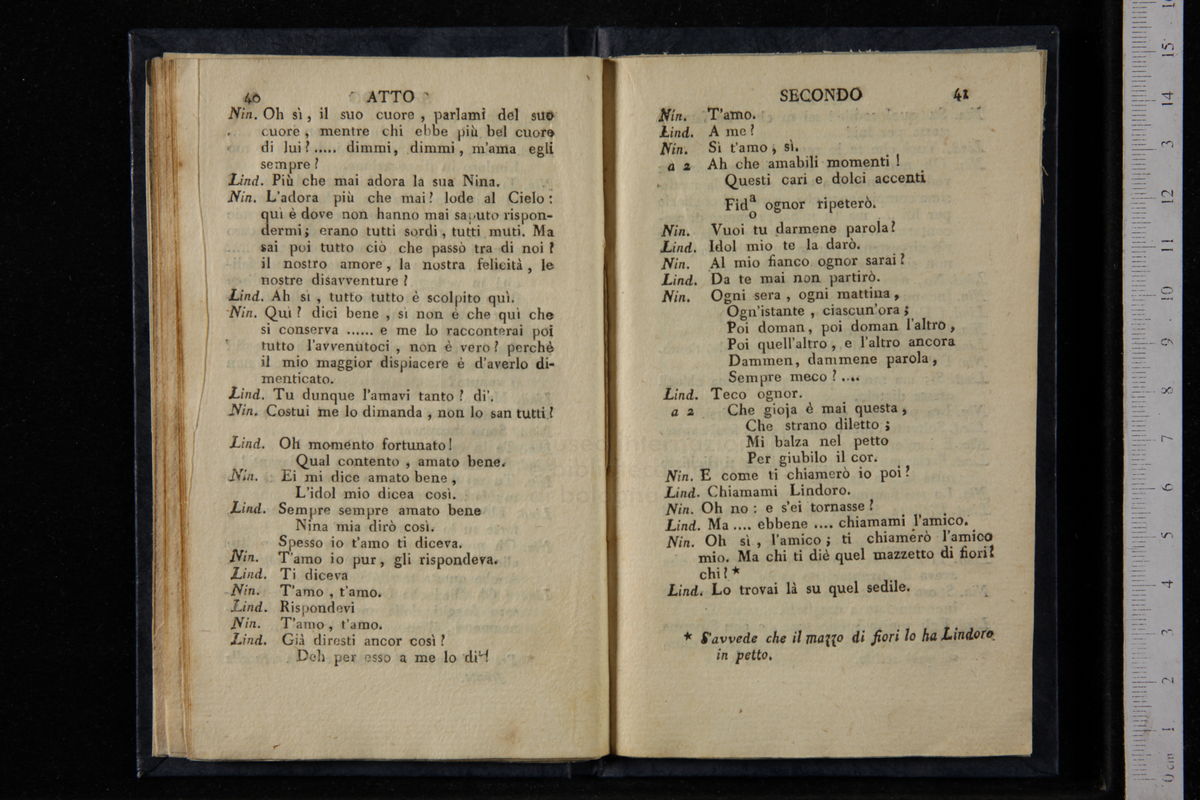 40 ATTO
Nin. Oh sì, il suo cuore, parlami del suo
cuore, mentre chi ebbe più bel cuore
di lui?..... dimmi, dimmi, m'ama egli
sempre?
Lind. Più che mai adora la sua Nina.
Nin. L'adora più che mai? lode al Cielo:
qui è dove non hanno mai saputo rispon-
dermi; erano tutti sordi, tutti muti. Ma
sai poi tutto ciò che passò tra di noi?
il nostro amore, la nostra felicità, le
nostre disavventure?
Lind. Ah si, tutto tutto è scolpito quì.
Nin. Qui? dici bene, si non è che qui che
si conserva ...... e me lo racconterai poi
tutto l'avvenutoci, non è vero? perchè
il mio maggior dispiacere è d'averlo di-
menticato.
Lind. Tu dunque l'amavi tanto? di'.
Nin. Costui me lo dimanda, non lo san tutti?
Lind. Oh momento fortunato!
Qual contento, amato bene.
Nin. Ei mi dice amato bene,
L'idol mio dicea così.
Lind. Sempre sempre amato bene
Nina mia dirò così.
Spesso io t'amo ti diceva.
Nin. T'amo io pur, gli rispondeva.
Lind. Ti diceva
Nin. T'amo, t'amo.
Lind. Rispondevi
Nin. T'amo, t'amo.
Lind. Già diresti ancor così?
Deh per esso a me lo dì!
SECONDO 41
Nin. T'amo.
Lind. A me?
Nin. Sì t'amo, sì.
a 2 Ah che amabili momenti!
Questi cari e dolci accenti
a
Fid ognor ripeterò.
o
Nin. Vuoi tu darmene parola?
Lind. Idol mio te la darò.
Nin. Al mio fianco ognor sarai?
Lind. Da te mai non partirò.
Nin. Ogni sera, ogni mattina,
Ogn'istante, ciascun'ora;
Poi doman, poi doman l'altro,
Poi quell'altro, e l'altro ancora
Dammen, dammene parola,
Sempre meco?....
Lind. Teco ognor.
a 2 Che gioja è mai questa,
Che strano diletto;
Mi balza nel petto
Per giubilo il cor.
Nin. E come ti chiamerò io poi?
Lind. Chiamami Lindoro.
Nin. Oh no: e s'ei tornasse?
Lind. Ma .... ebbene .... chiamami l'amico.
Nin. Oh sì, l'amico; ti chiamerò l'amico
mio. Ma chi ti diè quel mazzetto di fiori?
chi?*
Lind. Lo trovai là su quel sedile.
* S'avvede che il mazzo di fiori lo ha Lindoro
in petto.